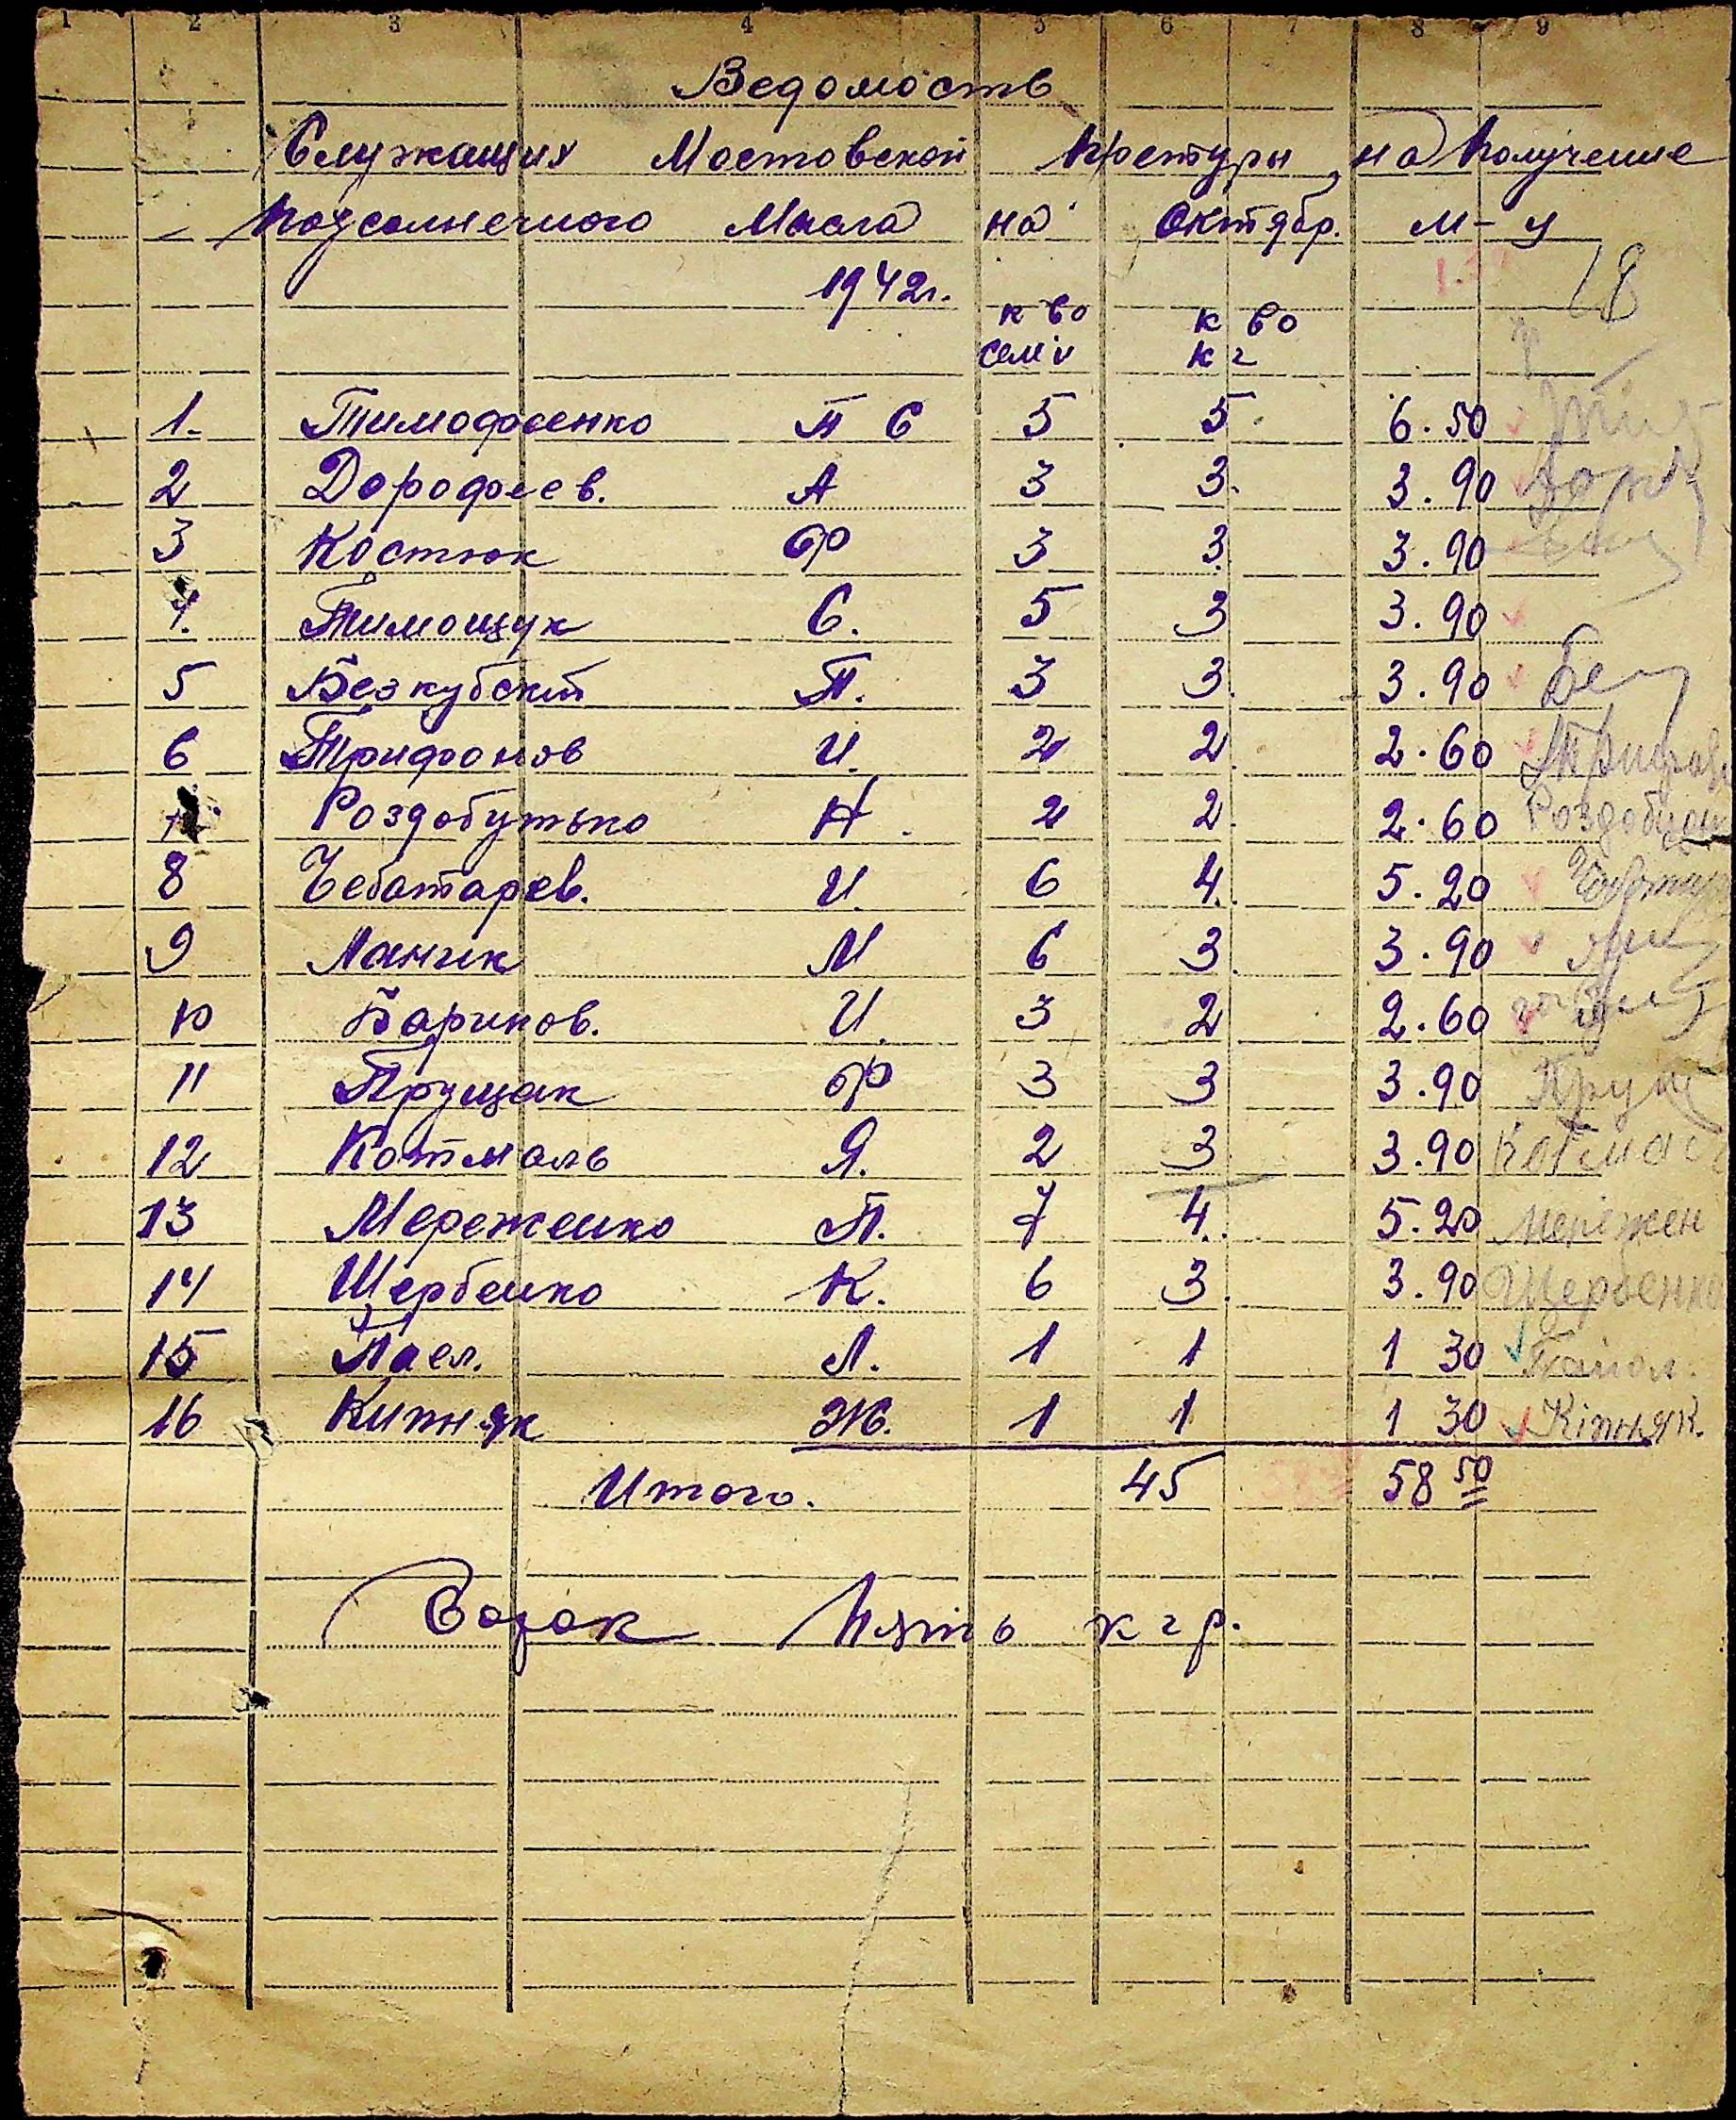 1 2 3 4 5 6 7 8 9
Ведомость
Служащих Мостовской на Получение
подсолнечного Масла на Октябр. м-ц
1942г.
18
к во к во
семӥ кг
1. Тимофеенко П С 5 5. 6.50
2 Дорофеев. А 3 3. 3.90
3 Костюк Ф 3 3. 3.90
4. Тимощук С. 5 3 3.90
5 Безкубский П. 3 3. 3.90
6 Трифонов И. 2 2. 2.60
Роздобутько Н. 2 2. 2.60
8 Чеботарев. И. 6 4. 5.20
9 Ланчик М 6 3. 3.90
10 Баринов. И. 3 2 2.60
11 Прущак Ф 3 3 3.90 Прущ
12 Котмаль Я. 2 3 3.90 Котмал
13 Мереженко П. 7 4. 5.20 Мережен
14 Щербенко К. 6 3. 3.90 Щербенко
15 Паел. Л. 1 1 1 30
16 Кипняк Ж. 1 1 1 30 Кіпняк.
Итого. 45 58 50
Сорок Пять кгр.